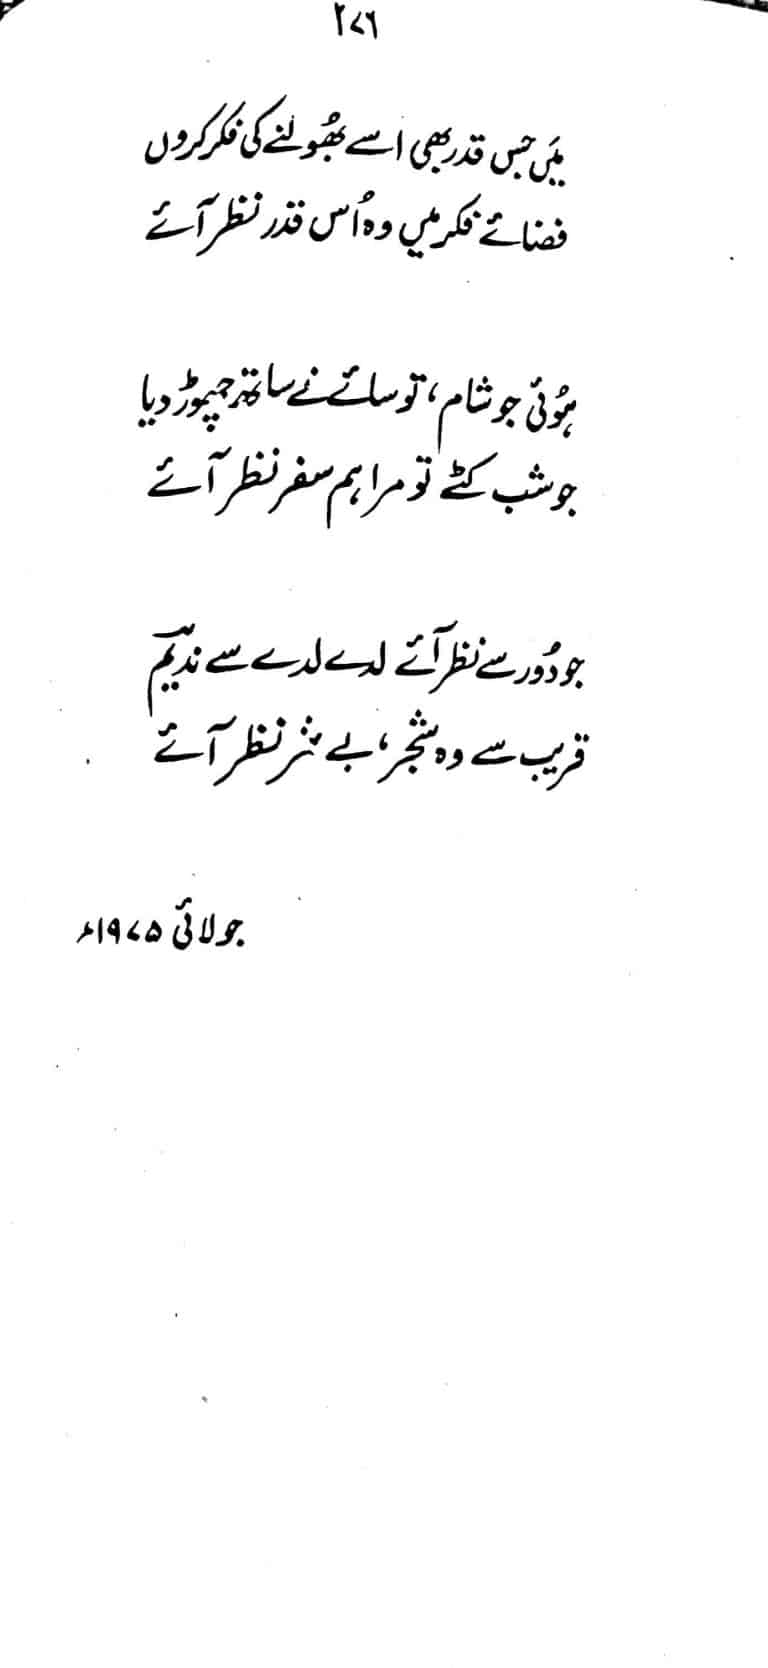 ۲۷۶
میَں جس قدر بھی اسے بھُولنے کی فکر کروں
فضائے فکر میں وہ اُس قدر نظر آئے
ہُوئی جو شام، تو سائے نے ساتھ چھوڑ دیا
جو شب کٹے تو مرا ہم سفر نظر آئے
جو دُور سے نظر آئے لدے لدے سے ندیمؔ
قریب سے وہ شجر، بے ثمر نظر آئے
جولائی ۱۹۷۵ء